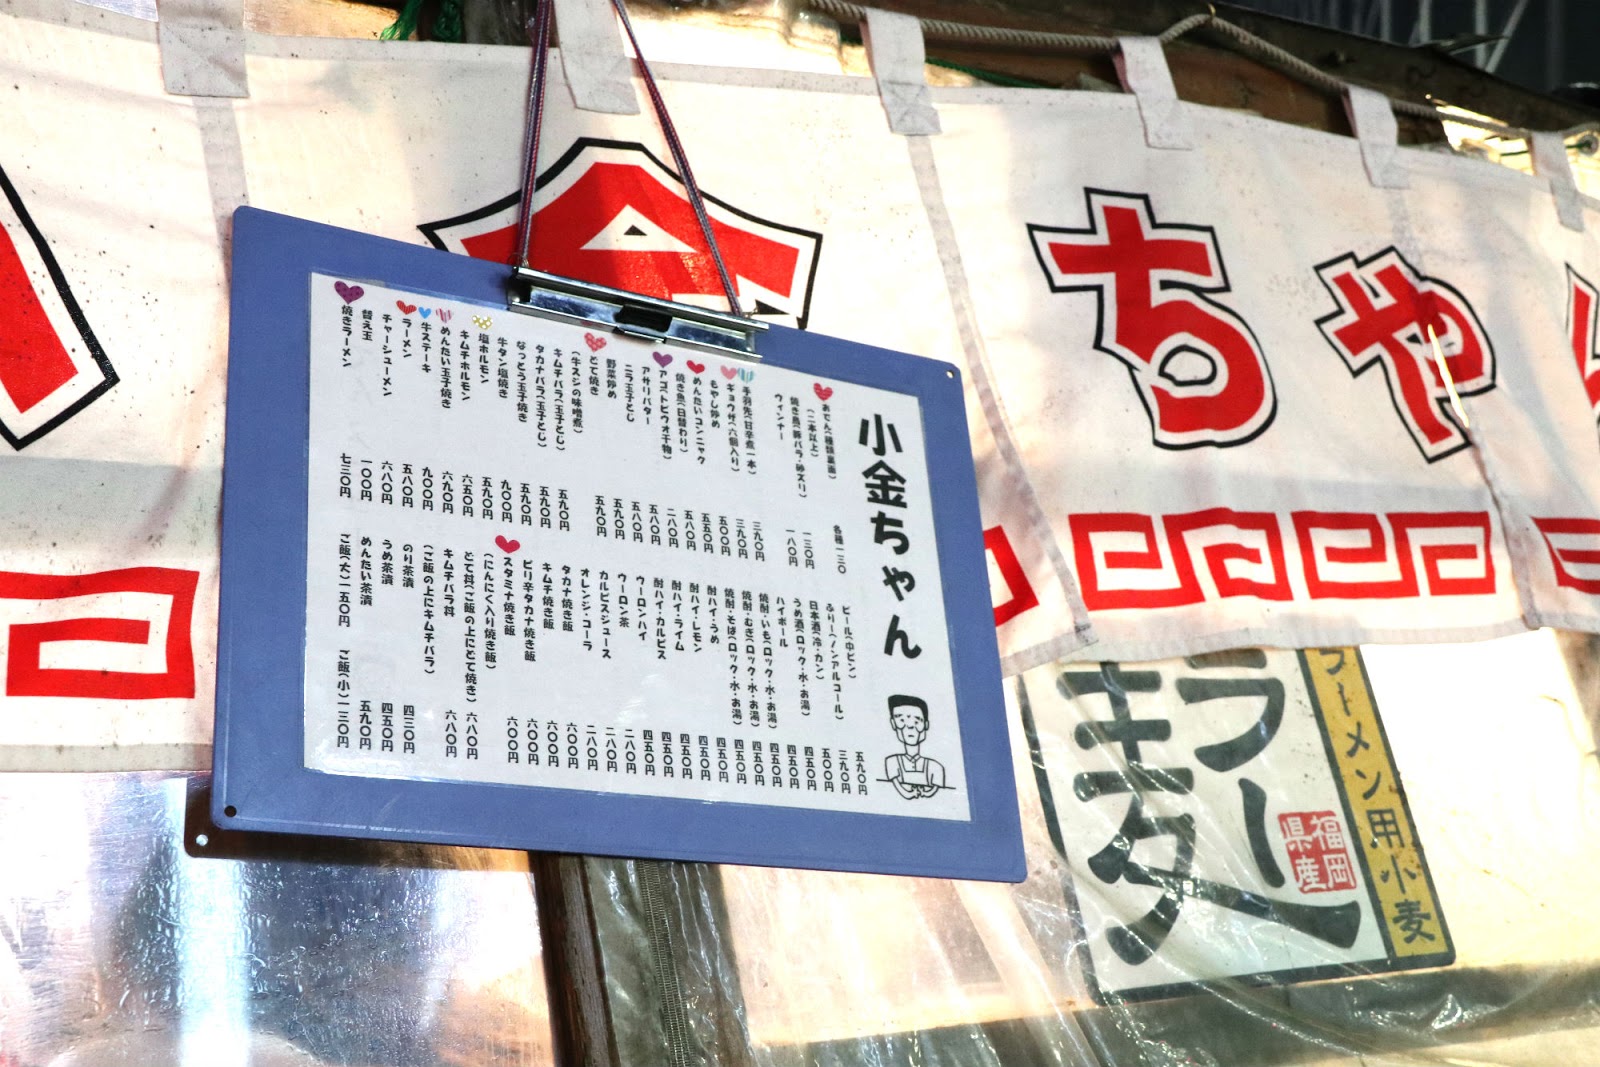 金ちゃ
小金ちゃん
おでん(種類裏面) 各種一三〇
(二本以上)
焼き鳥(豚バラ・砂ズリ) 一三〇円
ウィンナー 一八〇円
手羽先(甘辛煮一本) 三九〇円
ギョウザ(六個入り) 三九〇円
もやし炒め 五〇〇円
めんたいコンニャク 五五〇円
焼き魚(日替わり) 五八〇円
アゴ(トビウオ干物) 二八〇円
アサリバター 五八〇円
ニラ玉子とじ 五八〇円
野菜炒め 五九〇円
どて焼き 五九〇円
(牛スジの味噌煮)
キムチバラ(玉子とじ) 五九〇円
タカナバラ(玉子とじ) 五九〇円
なっとう玉子焼き 五九〇円
牛タン塩焼き 九〇〇円
塩ホルモン 五九〇円
キムチホルモン 六五〇円
めんたい玉子焼き 六九〇円
牛ステーキ 九〇〇円
ラーメン 五八〇円
チャーシューメン 六八〇円
替え玉 一〇〇円
焼きラーメン 七三〇円
ビール(中ビン) 五九〇円
ふりー(ノンアルコール) 三九〇円
日本酒(冷・カン) 五〇〇円
うめ酒(ロック・水・お湯) 四五〇円
ハイボール 四五〇円
焼酎・いも(ロック・水・お湯) 四五〇円
焼酎・むぎ(ロック・水・お湯) 四五〇円
焼酎・そば(ロック・水・お湯) 四五〇円
酎ハイ・うめ 四五〇円
酎ハイ・レモン 四五〇円
酎ハイ・ライム 四五〇円
酎ハイ・カルピス 四五〇円
ウーロンハイ 四五〇円
ウーロン茶 二八〇円
カルピスジュース 二八〇円
オレンジ・コーラ 二八〇円
タカナ焼き飯 六〇〇円
キムチ焼き飯 六〇〇円
ピリ辛タカナ焼き飯 六〇〇円
スタミナ焼き飯 六〇〇円
(にんにく入り焼き飯)
どて丼(ご飯の上にどて焼き) 六八〇円
キムチバラ丼 六八〇円
(ご飯の上にキムチバラ)
のり茶漬 四三〇円
うめ茶漬 四五〇円
めんたい茶漬 五九〇円
ご飯(大)一五〇円 ご飯(小)一三〇円
ラーメン用小麦
福岡県産
ラー麦